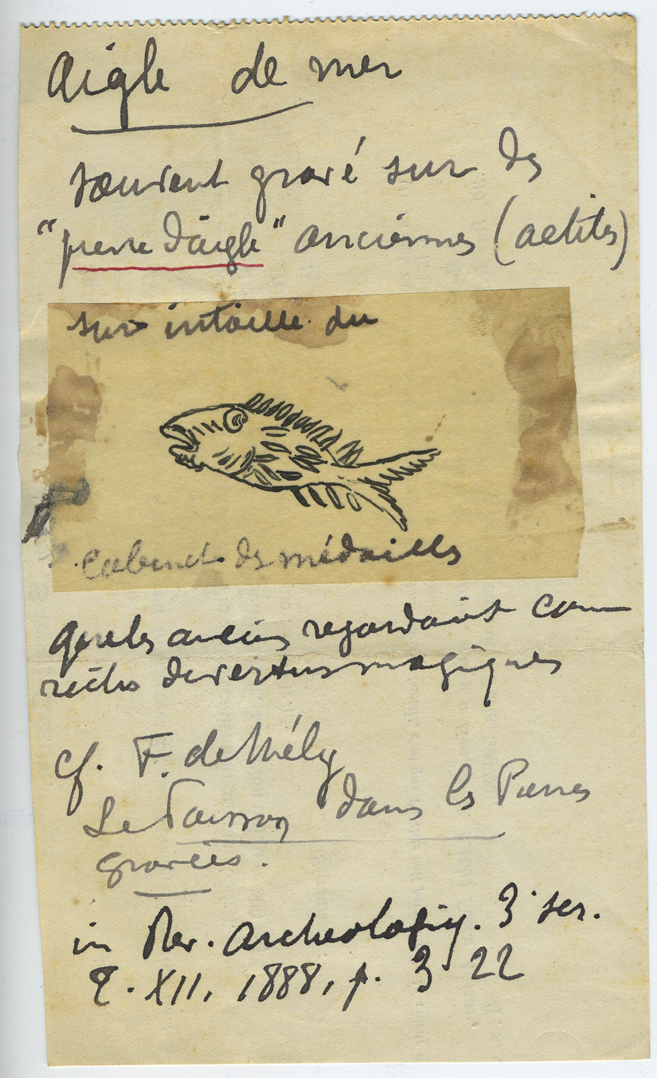 Aigle de mer
souvent gravé sur des
"pierre d'aigle" anciennes (aetites)
sur intaille du
cabinet des médailles
que les anciens regardaient comme
vertus magiques
cf. F. de Mély
Le Poisson dans les Pierres
gravées.
in Rev. Archeologiq. 3e ser.
t. XII, 1888, p. 322